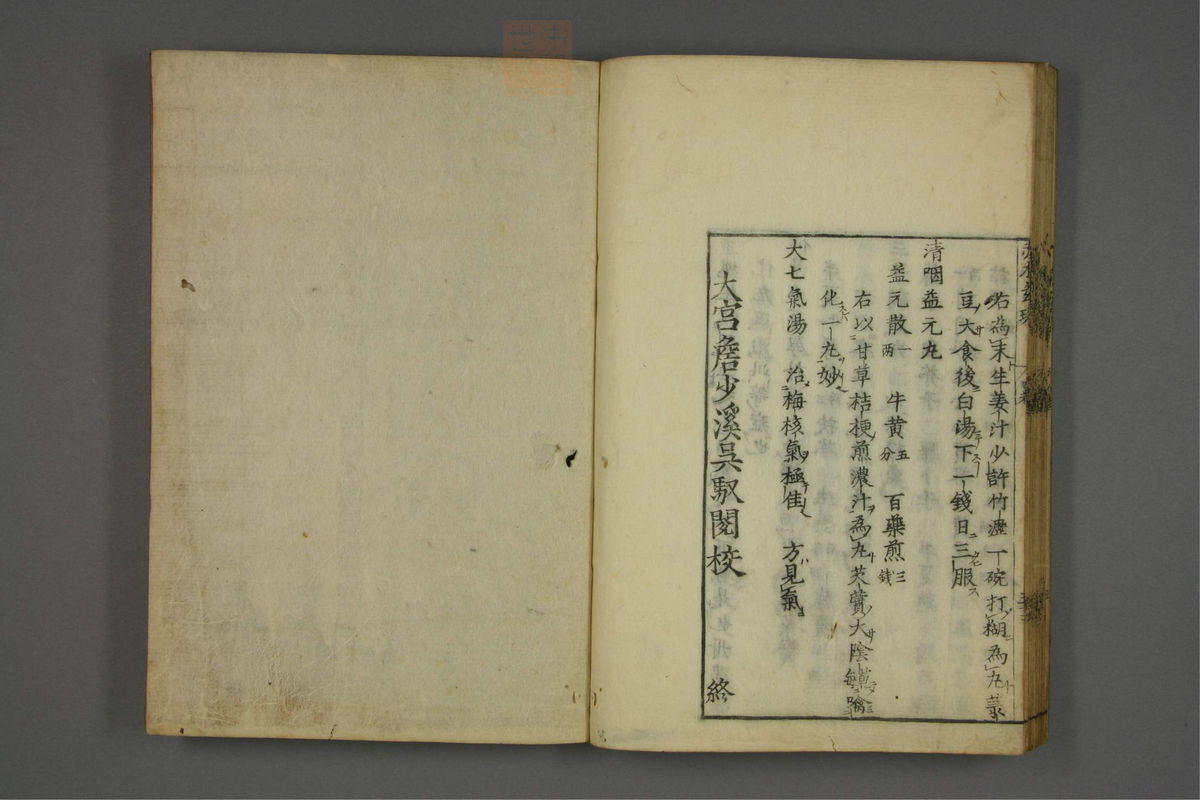 右為末生姜汁少許竹瀝一碗打糊為丸菉
豆大食後白湯下一錢日三服
清咽益元丸
益元散一兩 牛黄五分 百藥煎三錢
右以甘草桔梗煎濃汁為丸芡實大陰乾每噙
化一丸妙
大七氣湯 治梅核氣極佳 方見氣
大宫詹少溪吳馭閱校 終